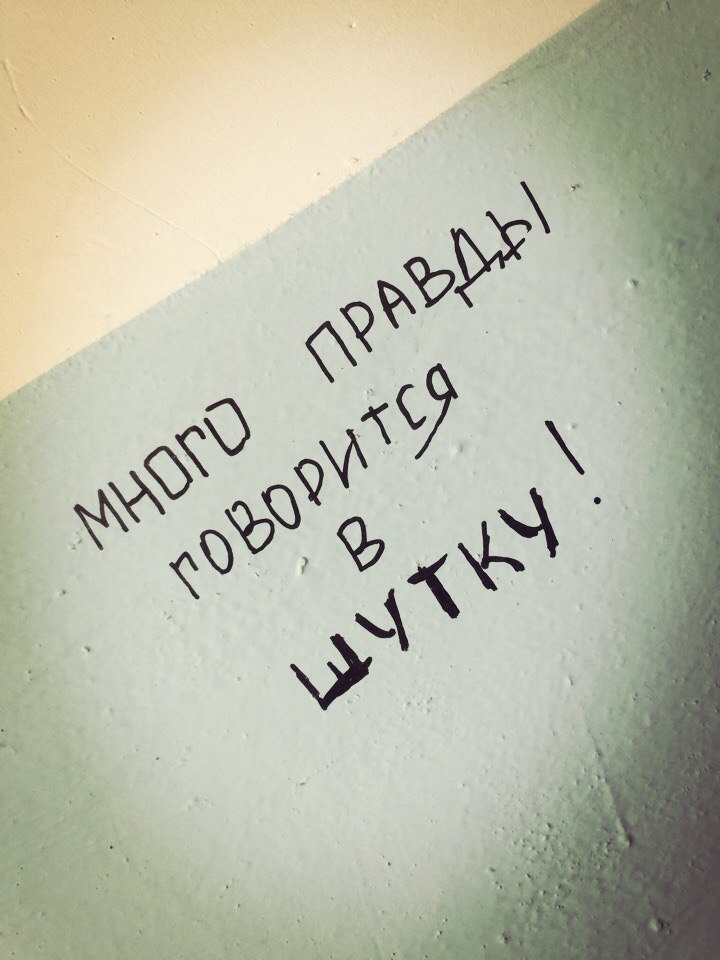 МНОГО ПРАВДЫ
ГОВОРИТСЯ
В
ШУТКУ!